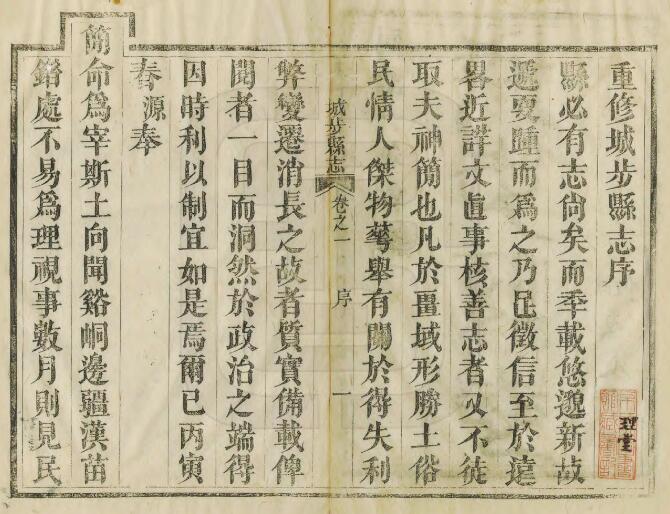 重修城步縣志序
縣必有志尚矣而秊載悠邈新故
遞更踵而爲之乃足徵信至於遠
畧近詳文眞事核善志者又不徒
取夫神簡也凡於畺域形勝土俗
民情人傑物蕐舉有關於得失利
城步縣志 卷之一 序 一
弊變遷消長之故者質實備載俾
閱者一目而洞然於政治之端得
因時利以制宜如是焉爾已丙寅
春源奉
簡命爲宰斯土向聞谿峒邊疆漢苗
錯處不易爲理視事數月則見民